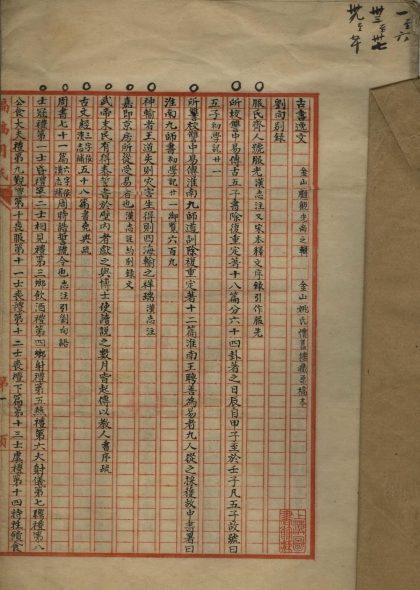 一至六
卅三至卅七
卅九至年
古書逸文
金山顧觀光尚之輯 金山姚氏懷舊樓藏稾本
劉向別錄
服氏齊人號服光漢志注又宋本釋文序錄引作服先
所校讐中易傳古五子書除復重定著十八篇分六十四卦著之日辰自甲子至於壬子凡五子故號曰
五子初學記廿一
所校讐中易傳淮南九師道訓除復重定著十二篇淮南王聘善為易者九人從之採獲故中書署曰
淮南九師書初學記廿一御覽六百九
神輸者王道失則災害生得則四海輸之祥瑞漢志注
嘉即京房所從受易者也漢志注引別錄文
武帝末民有得泰誓書於壁內者獻之與博士使讀說之數月皆起傳以教人書序疏
古文經五十八篇
周書七十一篇周時誥誓號令也志注引劉向語
士冠禮第一士昏禮第二士相見禮第三鄉飲酒禮第四鄉射禮第五燕禮第六大射儀第七聘禮第八
公食大夫禮第九覲禮第十喪服第十一士喪禮第十二士喪禮下篇第十三士虞禮第十四特牲饋食